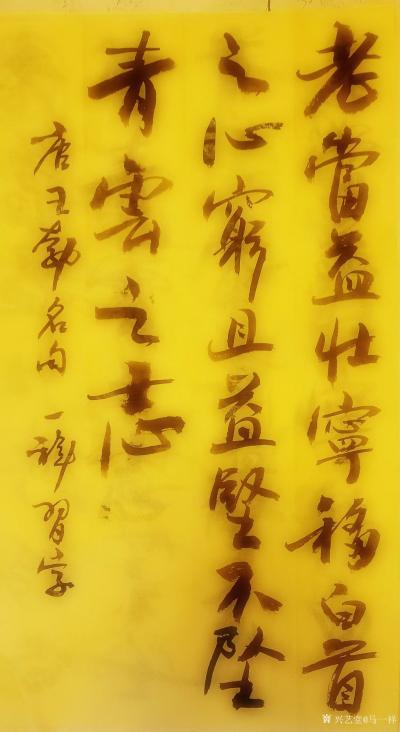 老當益壯寧移白首
之心窮且益堅不墜
青雲之志
唐王勃名句 一祥習字
兴艺堂@马一祥